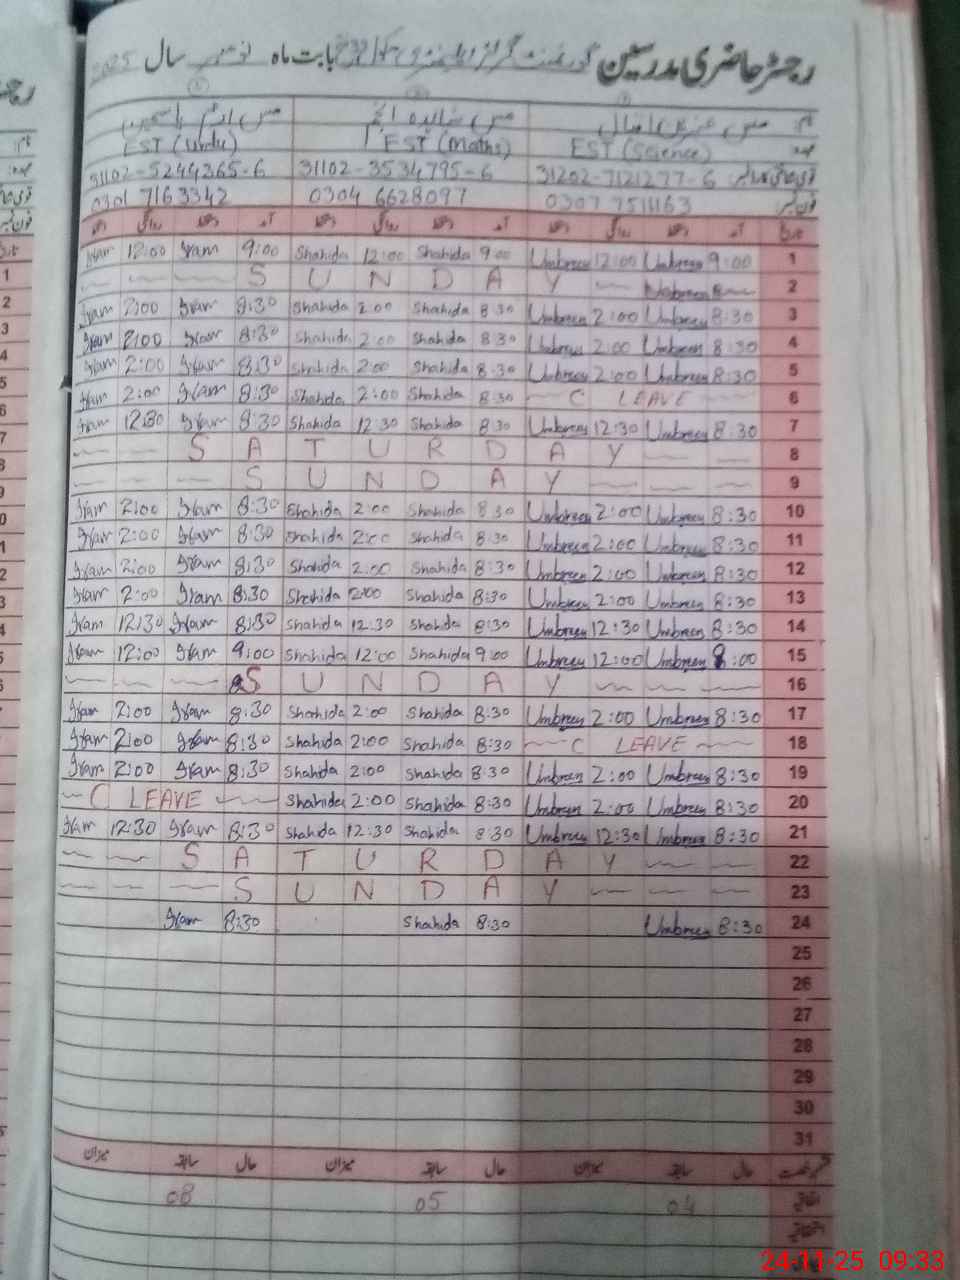 رجسٹر حاضری مدرسین گورنمنٹ گرلز ایلیمنٹری سکول بابت ماہ نومبر سال 2025
نام: مس عنبرین اقبال مس شاہدہ انجم مس ارم یاسمین
عہدہ EST (Science) EST (Maths) EST (Urdu)
31202-7121277-6 31102-3534795-6 31102-5244265-6
فون نمبر: 0307 7511163 0304 6628097 0301 7163342
تاریخ آمد دستخط روانگی دستخط آمد دستخط روانگی دستخط آمد دستخط روانگی دستخط
Iram 12:00 Iram 9:00 Shahida 12:00 Shahida 9:00 Umbreen 12:00 Umbreen 9:00 1
S U N D A Y 2
Iram 2:00 Iram 8:30 Shahida 2:00 Shahida 8:30 Umbreen 2:00 Umbreen 8:30 3
Iram 2:00 Iram 8:30 Shahida 2:00 Shahida 8:30 Umbreen 2:00 Umbreen 8:30 4
Iram 2:00 Iram 8:30 Shahida 2:00 Shahida 8:30 Umbreen 2:00 Umbreen 8:30 5
Iram 2:00 Iram 8:30 Shahida 2:00 Shahida 8:30 C LEAVE 6
Iram 12:30 Iram 8:30 Shahida 12:30 Shahida 8:30 Umbreen 12:30 Umbreen 8:30 7
S A T U R D A Y 8
S U N D A Y 9
Iram 2:00 Iram 8:30 Shahida 2:00 Shahida 8:30 Umbreen 2:00 Umbreen 8:30 10
Iram 2:00 Iram 8:30 Shahida 2:00 Shahida 8:30 Umbreen 2:00 Umbreen 8:30 11
Iram 2:00 Iram 8:30 Shahida 2:00 Shahida 8:30 Umbreen 2:00 Umbreen 8:30 12
Iram 2:00 Iram 8:30 Shahida 2:00 Shahida 8:30 Umbreen 2:00 Umbreen 8:30 13
Iram 12:30 Iram 8:30 Shahida 12:30 Shahida 8:30 Umbreen 12:30 Umbreen 8:30 14
Iram 12:00 Iram 9:00 Shahida 12:00 Shahida 9:00 Umbreen 12:00 Umbreen :00 15
S U N D A Y 16
Iram 2:00 Iram 8:30 Shahida 2:00 Shahida 8:30 Umbreen 2:00 Umbreen 8:30 17
Iram 2:00 Iram 8:30 Shahida 2:00 Shahida 8:30 C LEAVE 18
Iram 2:00 Iram 8:30 Shahida 2:00 Shahida 8:30 Umbreen 2:00 Umbreen 8:30 19
C LEAVE Shahida 2:00 Shahida 8:30 Umbreen 2:00 Umbreen 8:30 20
Iram 12:30 Iram 8:30 Shahida 12:30 Shahida 8:30 Umbreen 12:30 Umbreen 8:30 21
S A T U R D A Y 22
S U N D A Y 23
Iram 8:30 Shahida 8:30 Umbreen 8:30 24
25
26
27
28
29
30
31
حال سابقہ میزان حال سابقہ میزان حال سابقہ میزان
اتفاقیہ 04 05 08
24-11-25 09:33